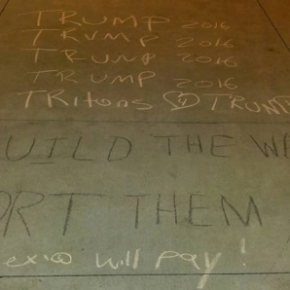 TRUMP 2016
TRUMP 2016
TRUMP 2016
TRUMP 2016
TRitons TRUMP
UILD THE W
ORT THEM
exico will pay!